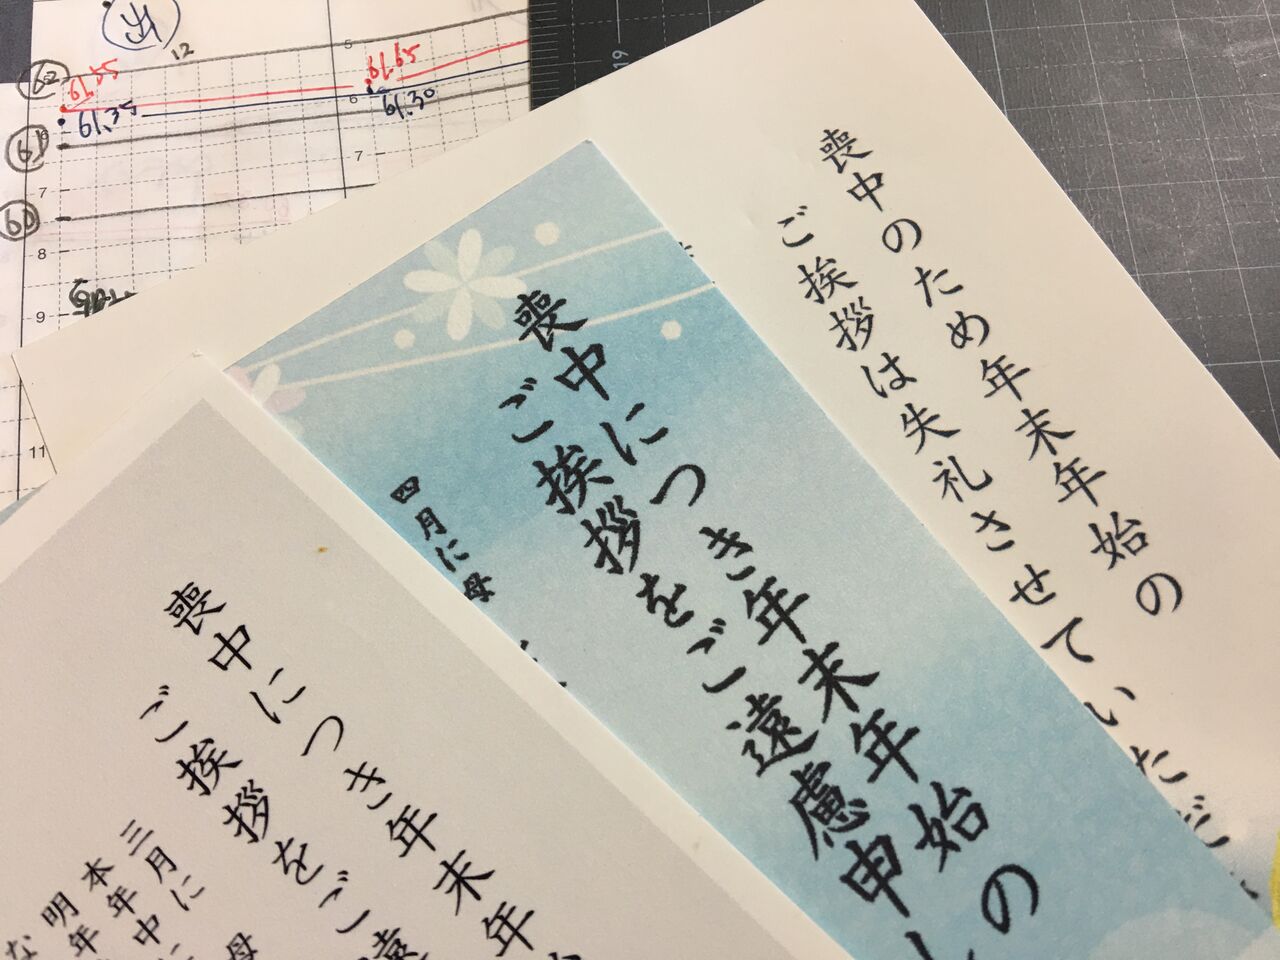 出
12
5
62
61.55
61.65
61.35
6
61.30
61
7
7
60
8
9
11
喪中のため年末年始の
ご挨拶は失礼させていただ
喪中につき年末年始の
ご挨拶をご遠慮申し
四月に母
喪中につき年末年
ご挨拶をご遠
三月に 母
本年中に
明年
な